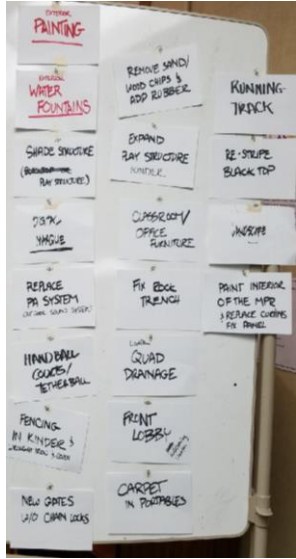 EXTERIOR
PAINTING
EXTERIOR
WATER
FOUNTAINS
SHADE STRUCTURE
PLAY STRUCTURE)
REPLACE
PA SYSTEM
HANDBALL
COURTS/
TETHERBALL
FENCING
IN KINDER &
NEW GATES
W/O CHAIN LOCKS
REMOVE SAND/
WOOD CHIPS &
ADD RUBBER
EXPAND
PLAY STRUCTURE
KINDER
CLASSROOM/
OFFICE
FURNITURE
FIX ROCK
TRENCH
LUNCH
QUAD
DRAINAGE
FRONT
LOBBY
CARPET
IN PORTABLES
RUNNING-
TRACK
RE-STRIPE
BLACKTOP
LANDSCAPE
PAINT INTERIOR
OF THE MPR
& REPLACE
FIX PANEL